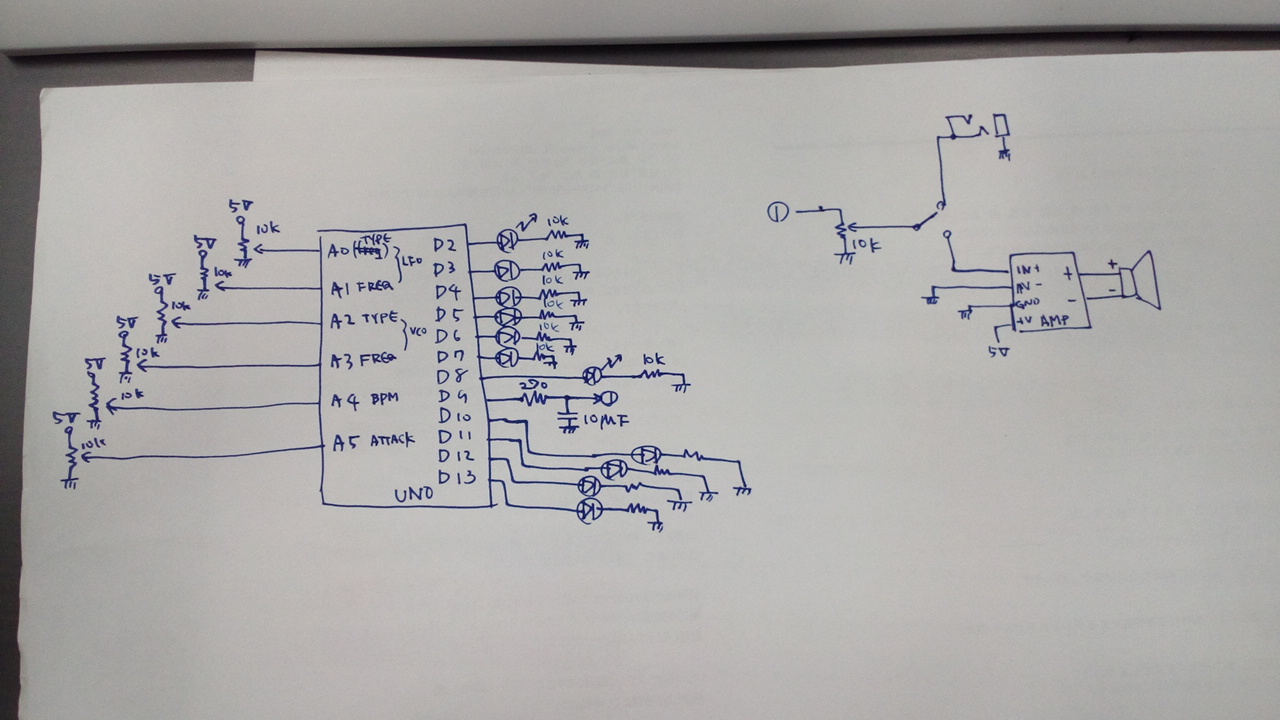 5V
10k
5V
10k
5V
10k
5V
10k
5V
10k
5V
10k
A0 (TYPE)
A1 FREQ
LFO
A2 TYPE
A3 FREQ
VCO
A4 BPM
A5 ATTACK
UNO
D2
D3
D4
D5
D6
D7
D8
D9
D10
D11
D12
D13
10k
10k
10k
10k
10k
10k
10k
270
①
10μF
①
10k
IN+
IN-
GND
+V AMP
+
-
+
-
5V